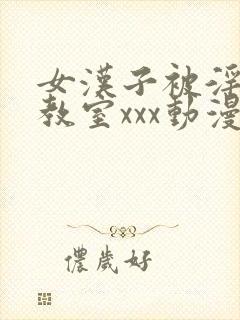 女漢子被淫
教室xxx動漫
儂歲好